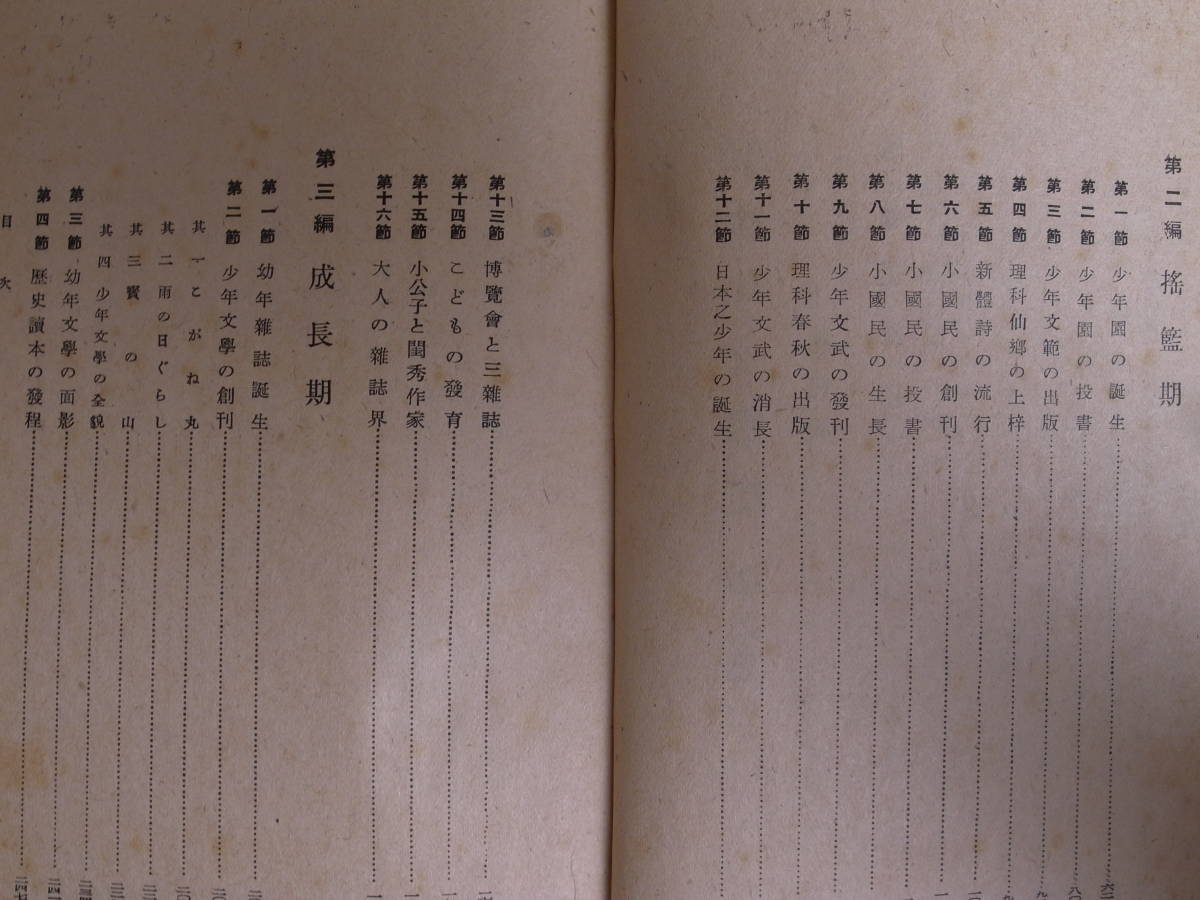 第二編 搖籃期
第一節 少年園の誕生
第二節 少年園の投書
第三節 少年文範の出版
第四節 理科仙鄕の上梓
第五節 新體詩の流行
第六節 小國民の創刊
第七節 小國民の投書
第八節 小國民の生長
第九節 少年文武の發刊
第十節 理科春秋の出版
第十一節 少年文武の消長
第十二節 日本之少年の誕生
第十三節 博覽會と三雜誌
第十四節 こどもの發育
第十五節 小公子と閨秀作家
第十六節 大人の雜誌界
第三編 成長期
第一節 幼年雜誌誕生
第二節 少年文學の創刊
其一 こがね丸
其二 雨の日ぐらし
其三 寶の山
其四 少年文學の全貌
第三節 幼年文學の面影
第四節 歷史讀本の發程
目次